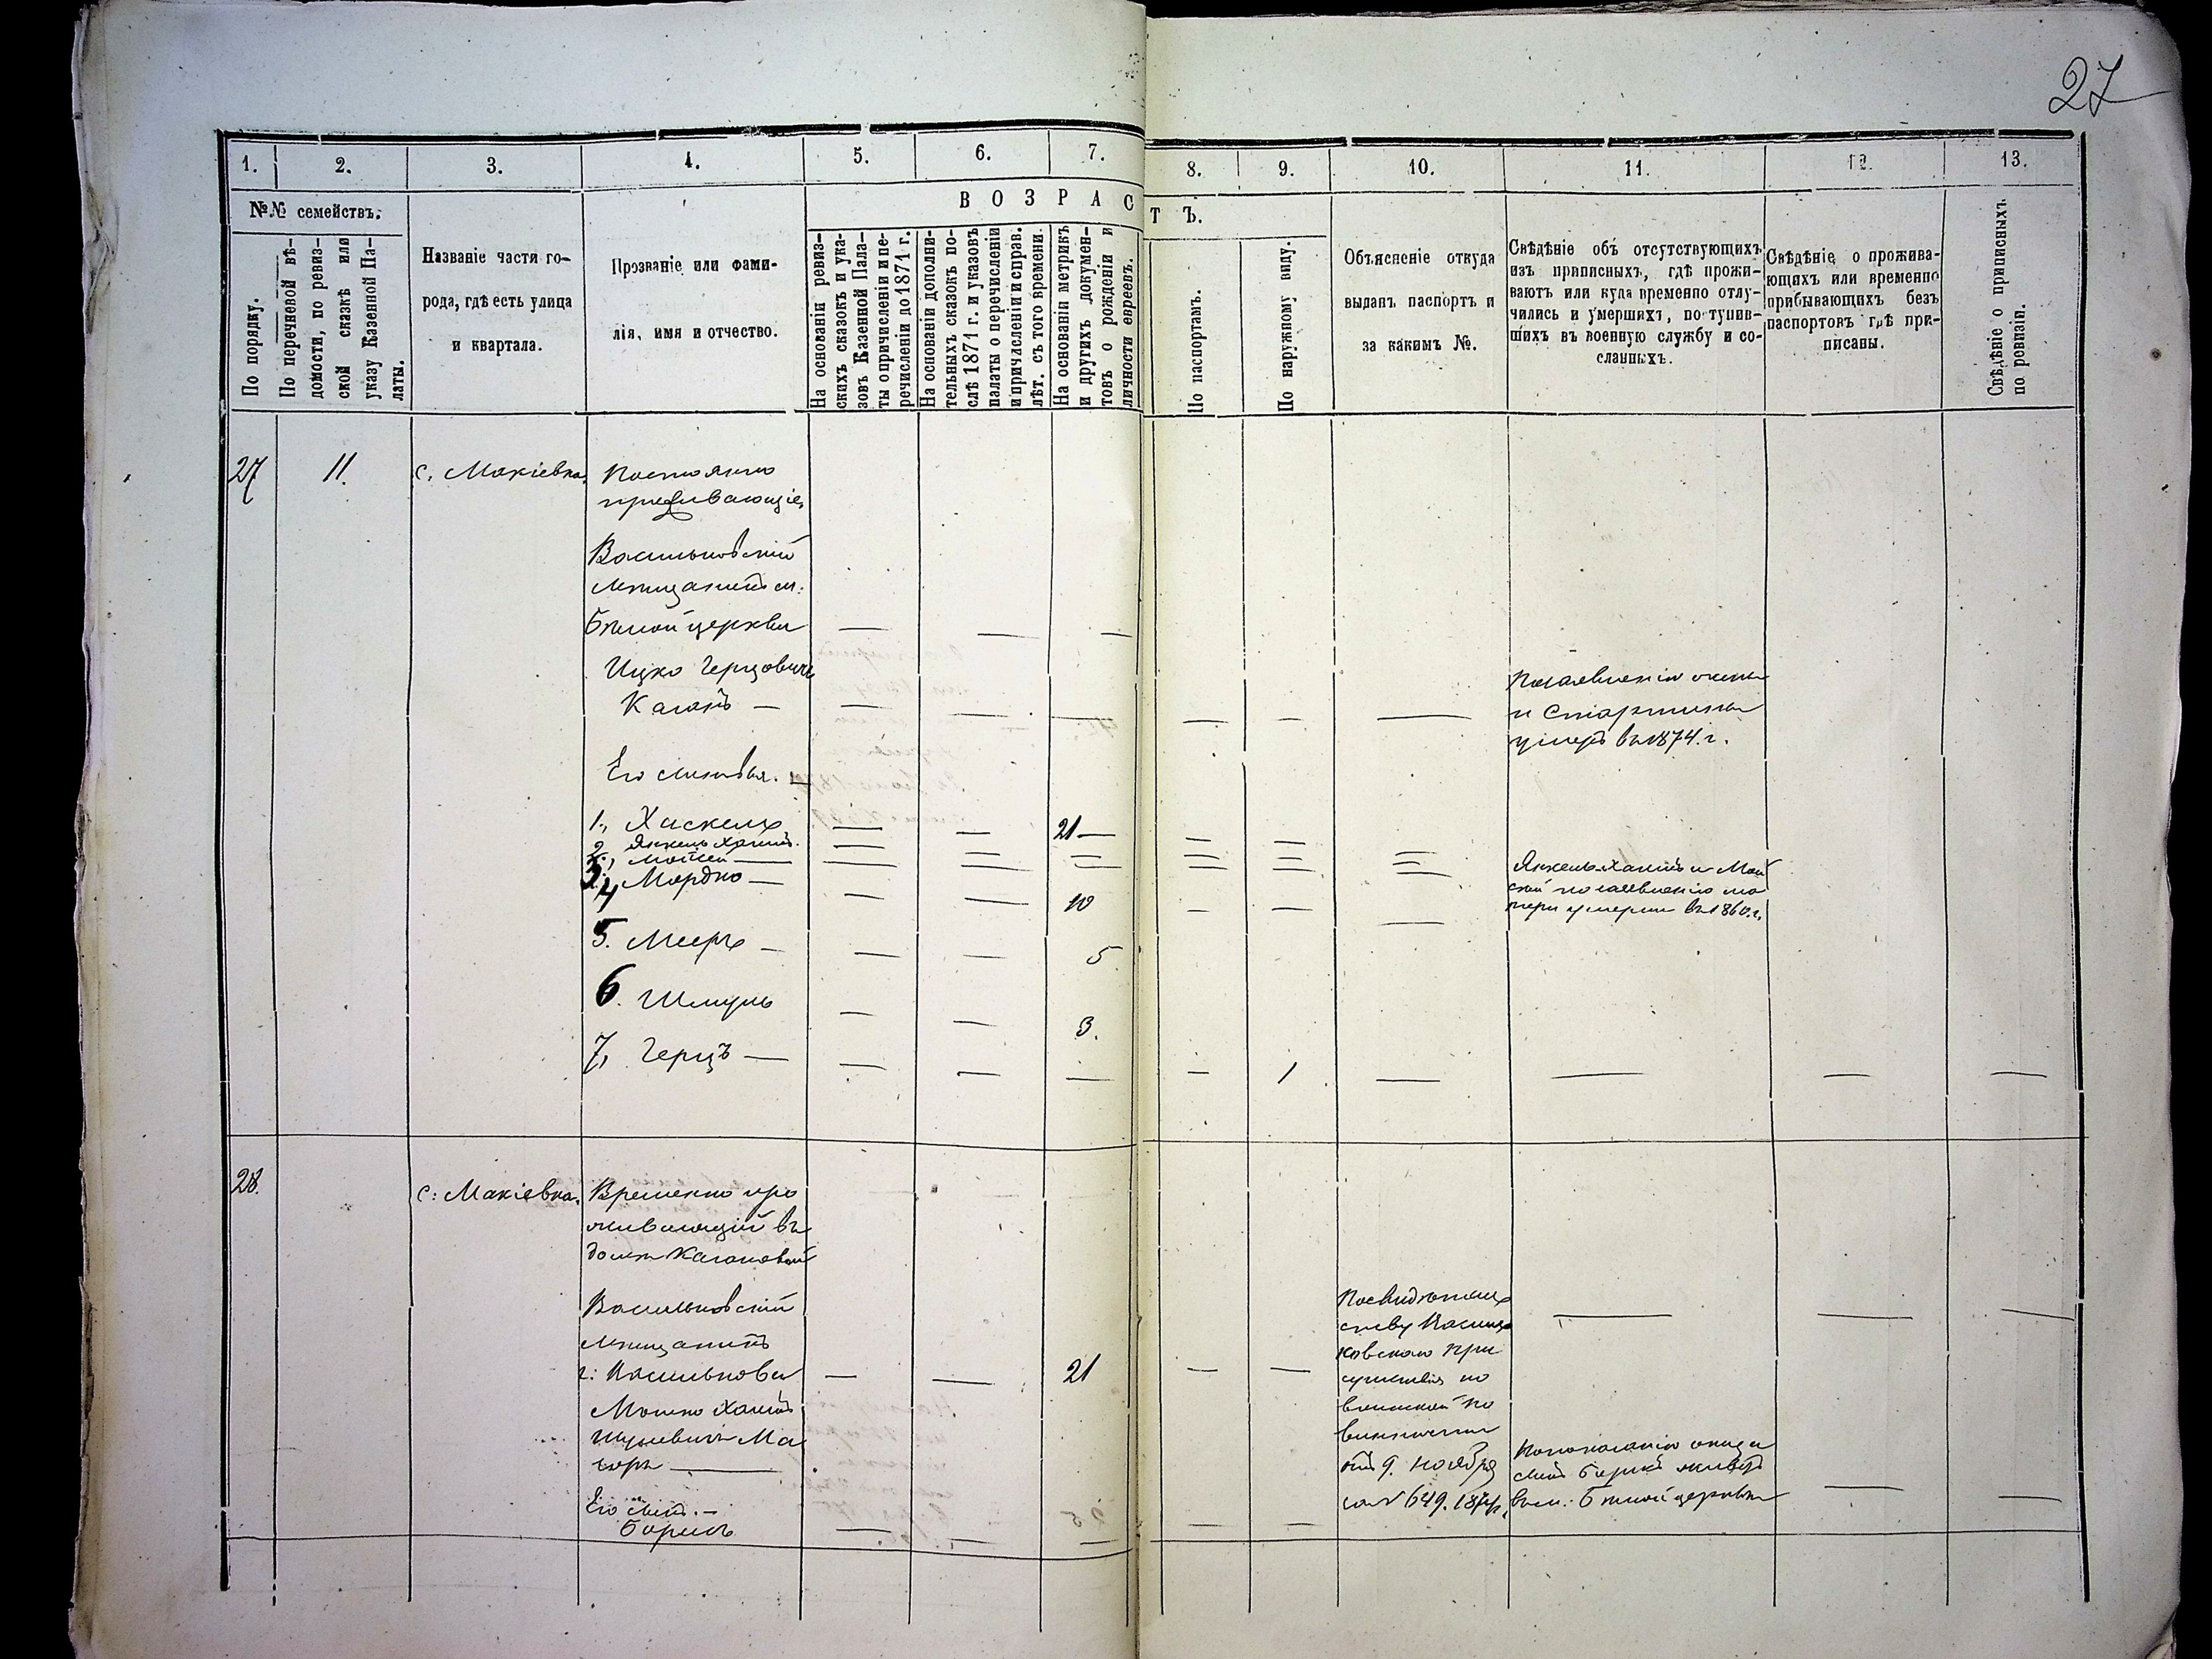 27
1.
2.
3.
4.
5.
6.
7.
8.
9.
10.
11.
12.
13.
№№ семействъ.
ВОЗРАСТЪ.
По порядку.
По перечневой вѣ-
домости, по ревиз-
ской сказкѣ или
указу Казенной Па-
латы.
Названіе части го-
рода, гдѣ есть улица
и квартала.
Прозваніе или фами-
лія, имя и отчество.
На основаніи ревиз-
скихъ сказокъ и ука-
зовъ Казенной Пала-
ты о причисленіи и пе-
речисленіи до 1871 г.
На основаніи дополни-
тельныхъ сказокъ по-
слѣ 1871 г. и указовъ
палаты о перечисленіи
и причисленіи и справ.
лѣт. съ того времени.
На основаніи метрикъ
и другихъ докумен-
товъ о рожденіи и
личности евреевъ.
По паспортамъ.
По наружному виду.
Объясненіе откуда
выданъ паспортъ и
за какимъ №.
Свѣдѣніе объ отсутствующихъ
изъ приписныхъ, гдѣ прожи-
ваютъ или куда временно отлу-
чились и умершихъ, поступив-
шихъ въ военную службу и со-
сланныхъ.
Свѣдѣніе о прожива-
ющихъ или временно
прибывающихъ безъ
паспортовъ гдѣ при-
писаны.
Свѣдѣніе о приписныхъ
по ревизіи.
27
11.
с. Макіевка.
Постоянно
пребивающіе,
Васильковскій
мещанинъ м:
Бѣлой церкви — — —
Ицко Герцовичъ
Каганъ — — — — — — —
По заявленію жены
и Старшины
умеръ въ 1874. г.
Его сыновья. —
1., Хаскель — — 21 — — — —
2. Янкель Хаимъ. — — — — — —
3., Мошей — — — — — — —
Янкель Хаимъ и Мой
сей по заявленію ма
тери умерли въ 1860. г.
4 Мордко — — — 10 — — —
5. Мееръ — — — 5
6. Шмуль — — 3.
7, Герцъ — — — — — 1 — — — —
28.
с: Макіевка.
Временно про
живающій въ
доме Кагановой
Васильковскій
мещанинъ
г: Василькова — — 21 — —
Мошко Хаимъ
Шулевичъ Ма
Его сынъ. —
Борухъ — — — — —
По свидѣтель
ству Василь
ковскаго При
сутствія по
воинской по
винности
отъ 9. ноября
за № 649. 1874г.
— — —
По показанію отца и
сынъ Борухъ живетъ
въ м: Бѣлой церкви —